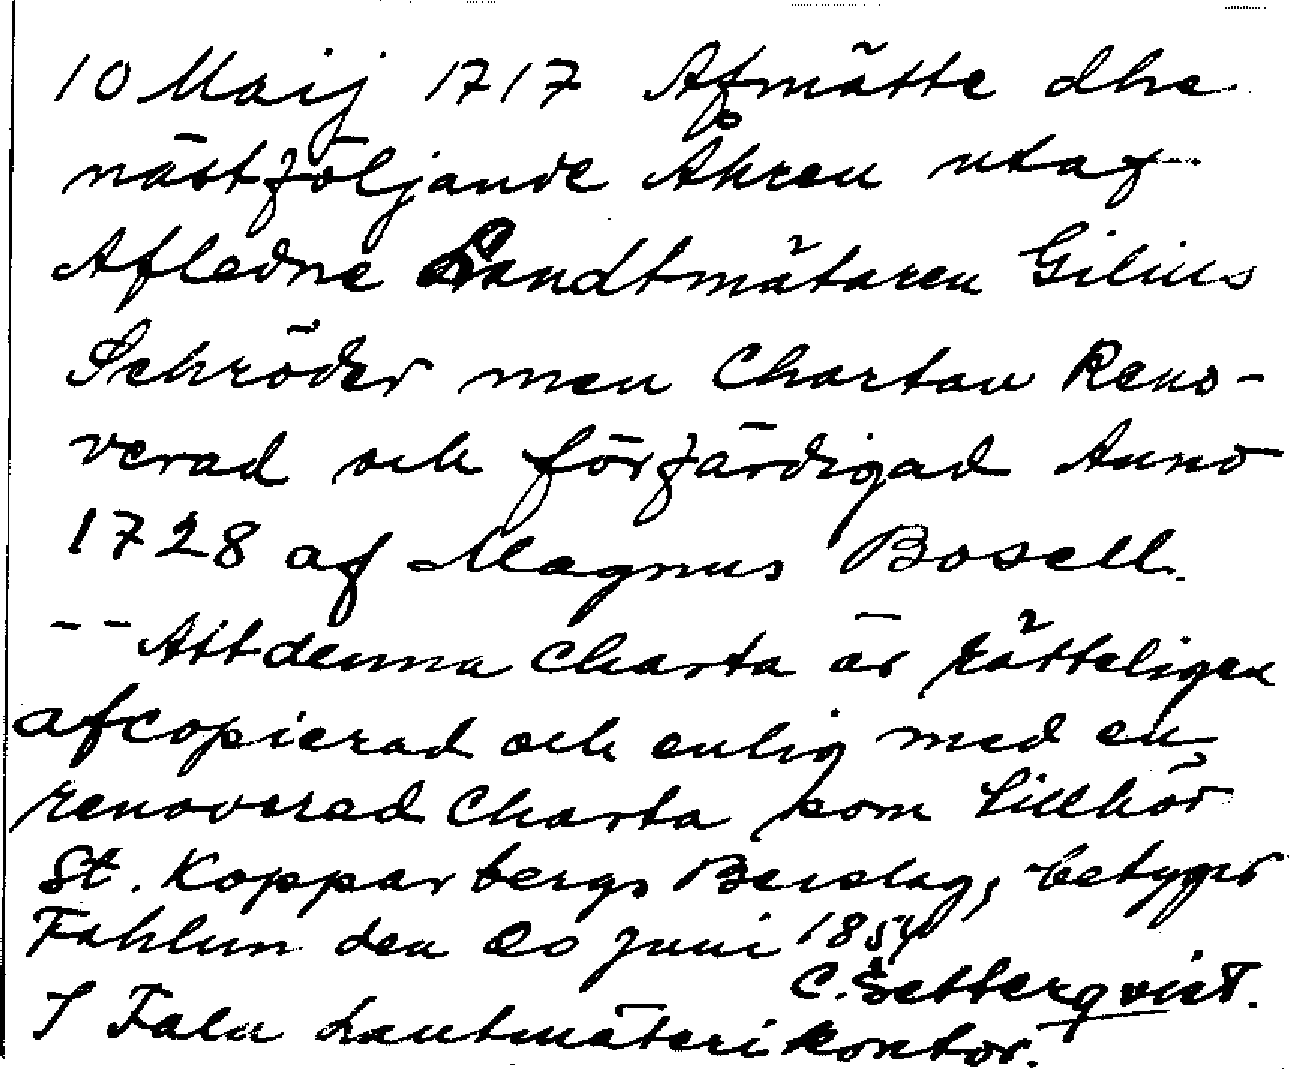 10 Maij 1717 Afmätte dhe
nästföljande Åhren utaf
Afledne Landtmätaren Gilius
Schröder men Chartan Reno-
verad och förfärdigad Anno
1728 af Magnus Bosell.
-- Att denna Charta är rätteligen
afcopierad och enlig med en
renoverad Charta som tillhör
St. Kopparbergs Berslag, betyger
Fahlun den 20 juni 1854
C. Setterqvist.
I Falu Lantmäterikontor.